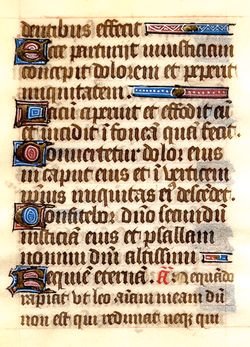 dentibus effecit
Ecce parturiit iniusticiam
concepit dolorem et peperit
iniquitatem
Lacū aperuit et effodit eū
et incidit ī foueā quā fecit
Conuertetur dolor eius
in caput eius et ī verticem
ipsius iniquitas ei9 descēdet.
Confitebor dño secundū
iusticiā eius et psallam
nomini dñi altissimi
Requiē eternā. añ Nequādo
rapiat vt leo aīam meam dū
non est qui redimat neqz qui